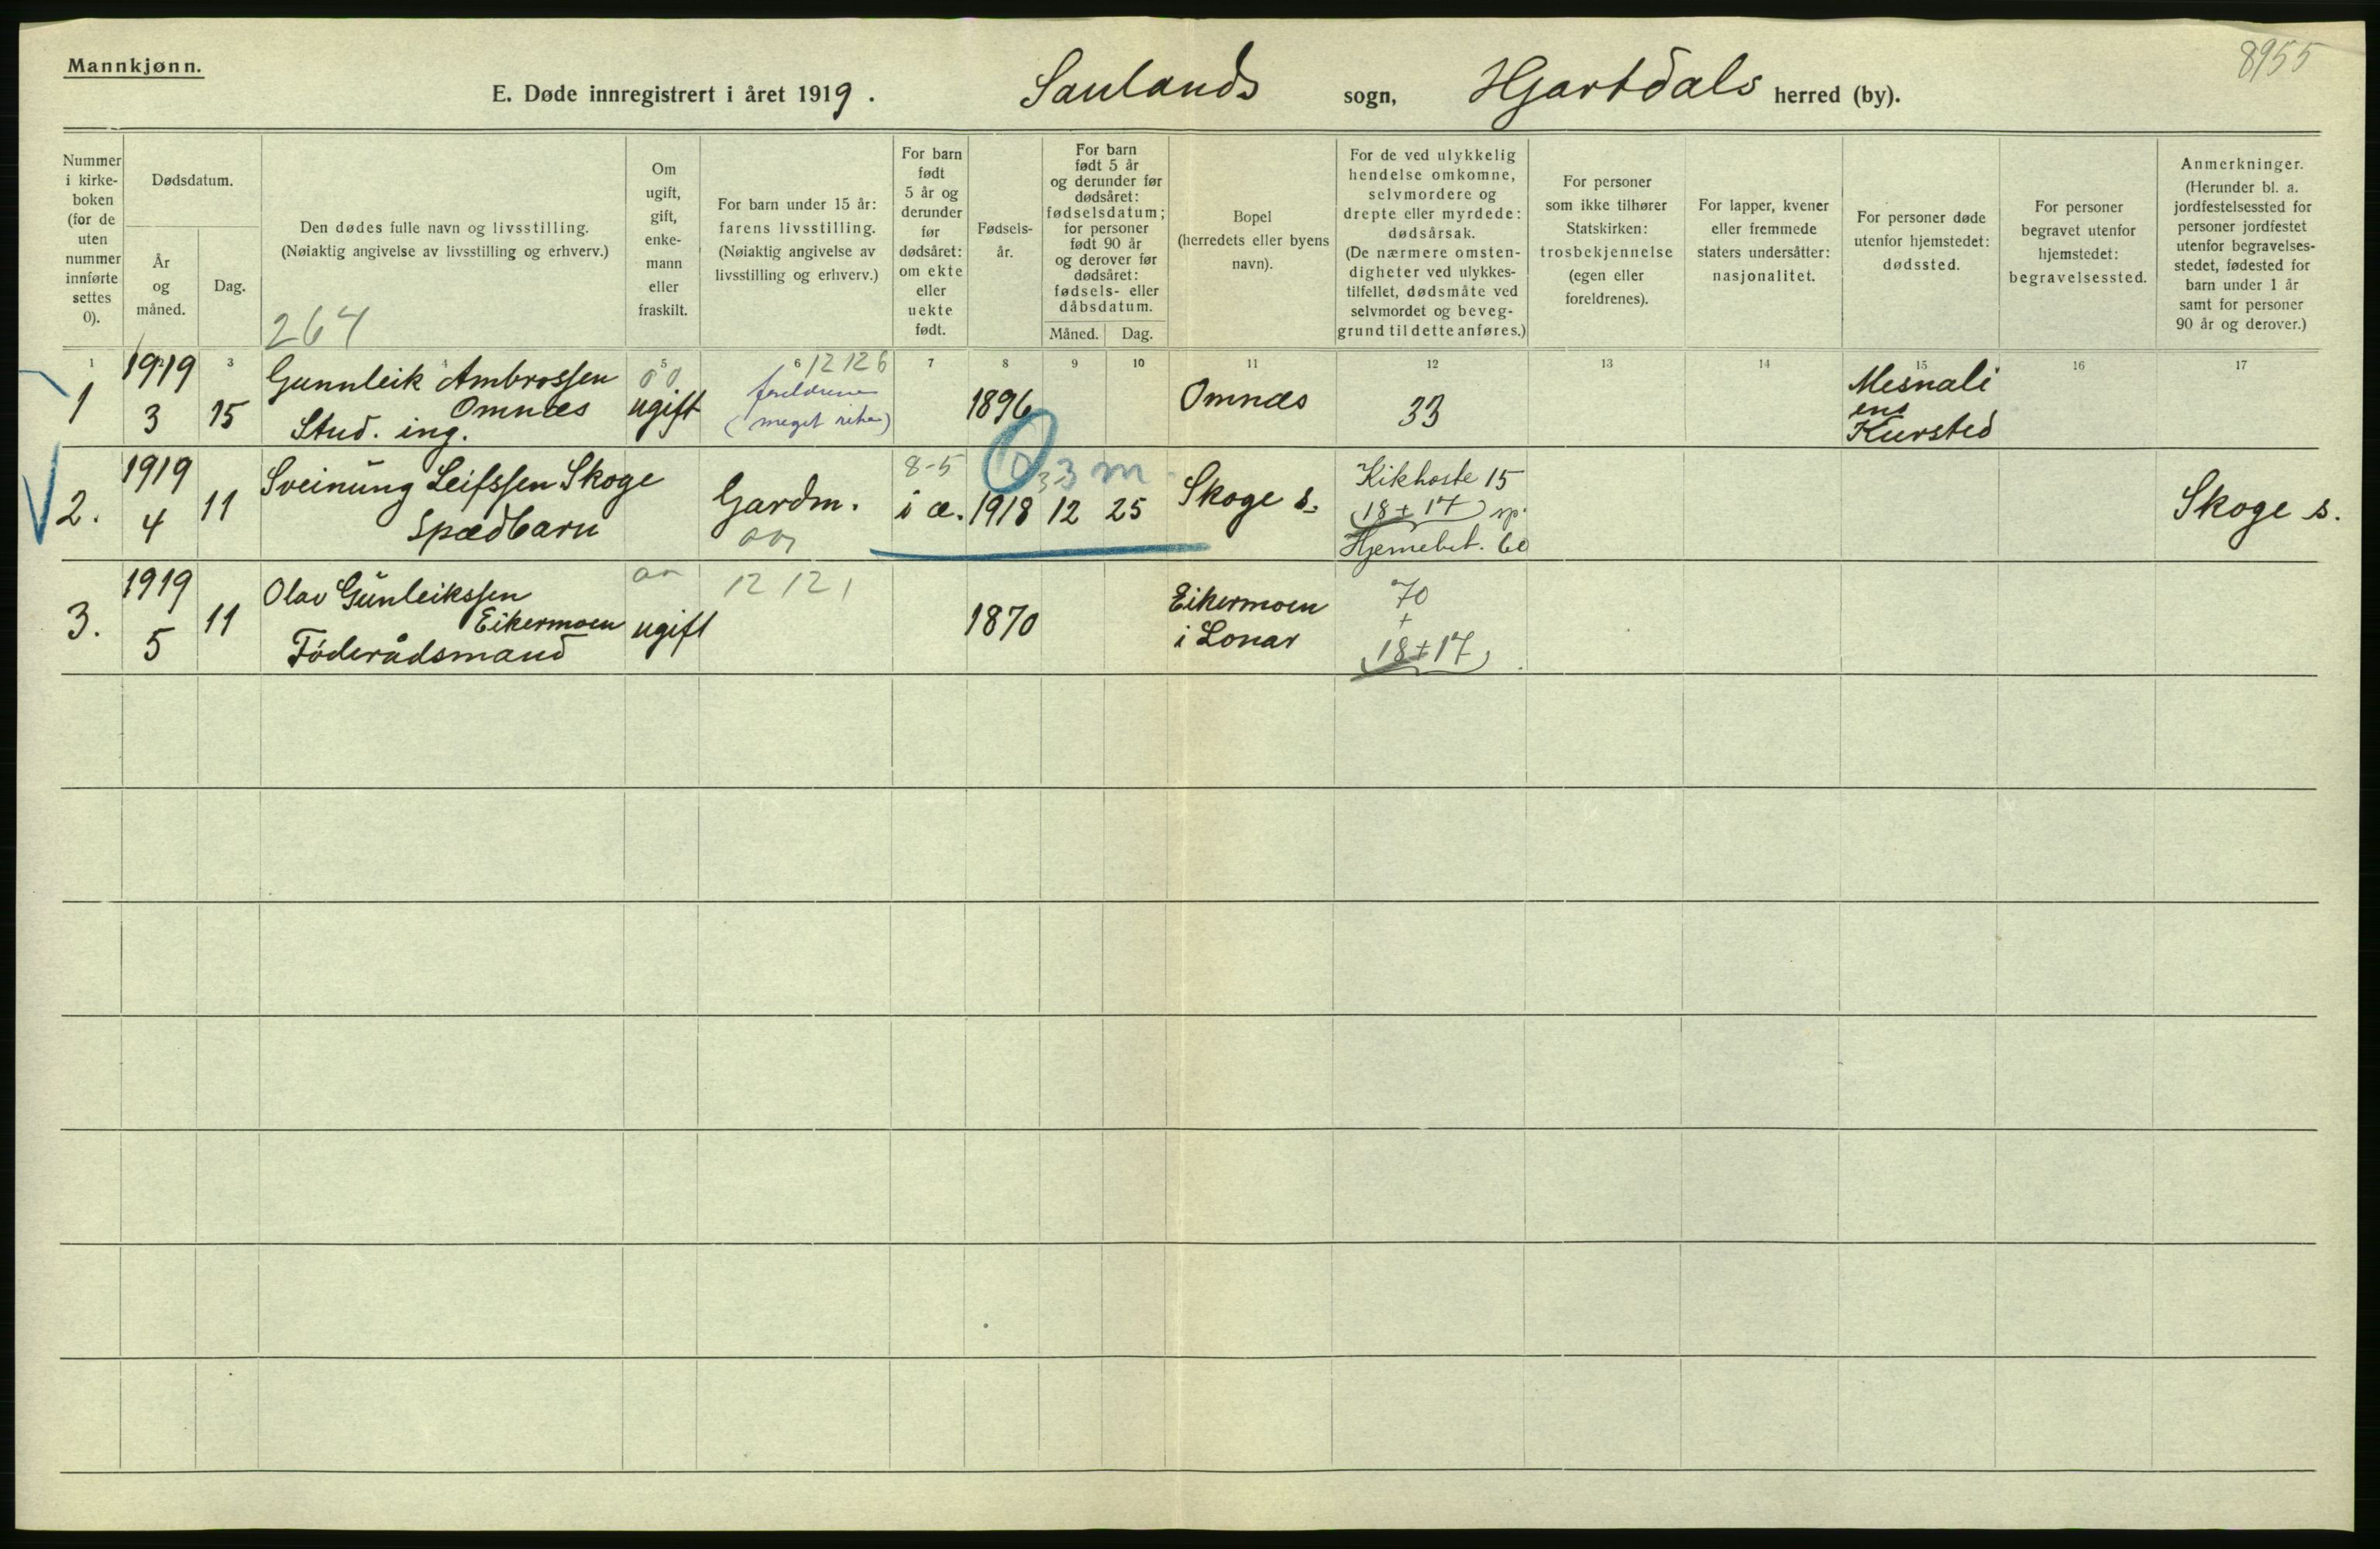 Mannkjønn.
8955
E. Døde innregistrert i året 1919. Saulands sogn, Hjartdals herred (by).
Nummer i kirkeboken (for de uten nummer innførte settes 0).
Dødsdatum.
År og måned.
Dag.
Den dødes fulle navn og livsstilling.
(Nøiaktig angivelse av livsstilling og erhverv.)
264
Om ugift, gift, enkemann eller fraskilt.
For barn under 15 år: farens livsstilling.
(Nøiaktig angivelse av livsstilling og erhverv.)
For barn født 5 år og derunder før dødsåret: om ekte eller uekte født.
Fødselsår.
For barn født 5 år og derunder før dødsåret: fødselsdatum; for personer født 90 år og derover før dødsåret: fødsels- eller dåbsdatum.
Måned. Dag.
Bopel (herredets eller byens navn).
For de ved ulykkelig hendelse omkomne, selvmordere og drepte eller myrdede: dødsårsak.
(De nærmere omstendigheter ved ulykkestilfellet, dødsmåte ved selvmordet og beveggrund til dette anføres.)
For personer som ikke tilhører Statskirken: trosbekjennelse (egen eller foreldrenes).
For lapper, kvener eller fremmede staters undersåtter: nasjonalitet.
For personer døde utenfor hjemstedet: dødssted.
For personer begravet utenfor hjemstedet: begravelsessted.
Anmerkninger.
(Herunder bl. a. jordfestelsessted for personer jordfestet utenfor begravelsesstedet, fødested for barn under 1 år samt for personer 90 år og derover.)
1 3 5 6 7 8 9 10 11 12 13 14 15 16 17
1 1919 3 15 Gunnleik Ambrossen Omnæs
Stud. ing.
00
ugift
12 12 6
(meget
1896
Omnæs
33
Mesnali
ens
Kursted
2. 1919 4 11 Sveinung Leifssen Skoge
Spædbarn
Gardm.
8-5
i æ. 1918 12 25
3 m
Skoge s.
Kikhoste 15
(18+17) sp.
Skoge s.
3. 1919 5 11 Olav Gunleikssen
Eikermoen
Föderådsmand
ugift
12 12 1
1870
Eikermoen
i Lonar
70
+
18+17